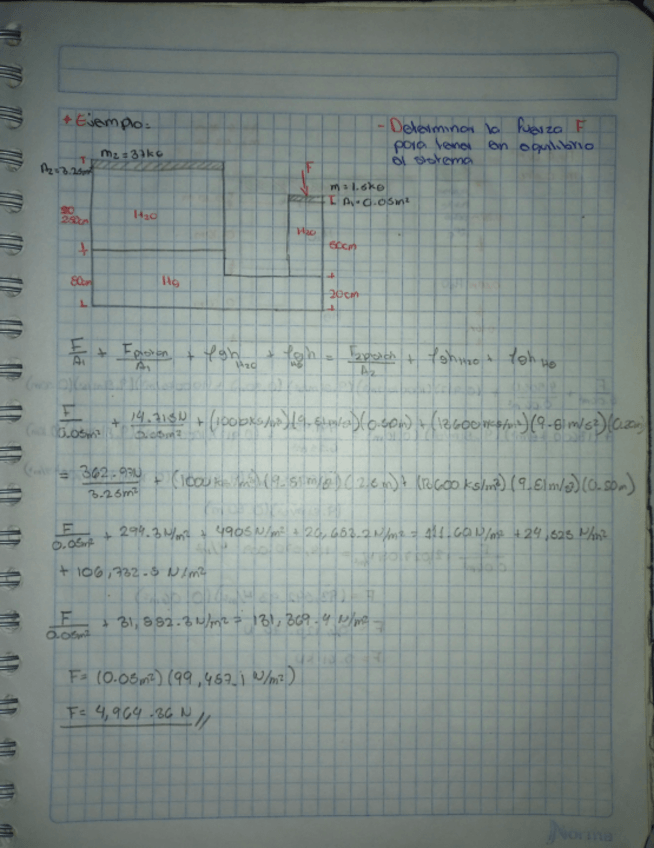 + Ejemplo:
- Determinar la fuerza F
para tener en equilibrio
el sistema
m₂=37kg
A₂=3.25m²
F
m=1.5kg
A₁=0.05m²
H₂O
H₂O
250cm
50cm
80cm
Hg
20cm
F/A₁ + Fpiston/A₁ + ρgh H₂O + ρgh Hg = F2piston/A₂ + ρgh H₂O + ρgh Hg
F/0.05m² + 14.715N/0.05m² + (1000kg/m³)(9.81m/s²)(0.50m) + (13600kg/m³)(9.81m/s²)(0.20m)
= 362.97N/3.25m² + (1000kg/m³)(9.81m/s²)(2.5m) + (13600kg/m³)(9.81m/s²)(0.80m)
F/0.05m² + 294.3N/m² + 4905N/m² + 26,683.2N/m² = 111.60N/m² + 24,525N/m²
+ 106,732.8 N/m²
F/0.05m² + 31,882.3N/m² = 131,369.4 N/m²
F= (0.05m²)(99,487.1 N/m²)
F= 4,964.36 N //
Norma